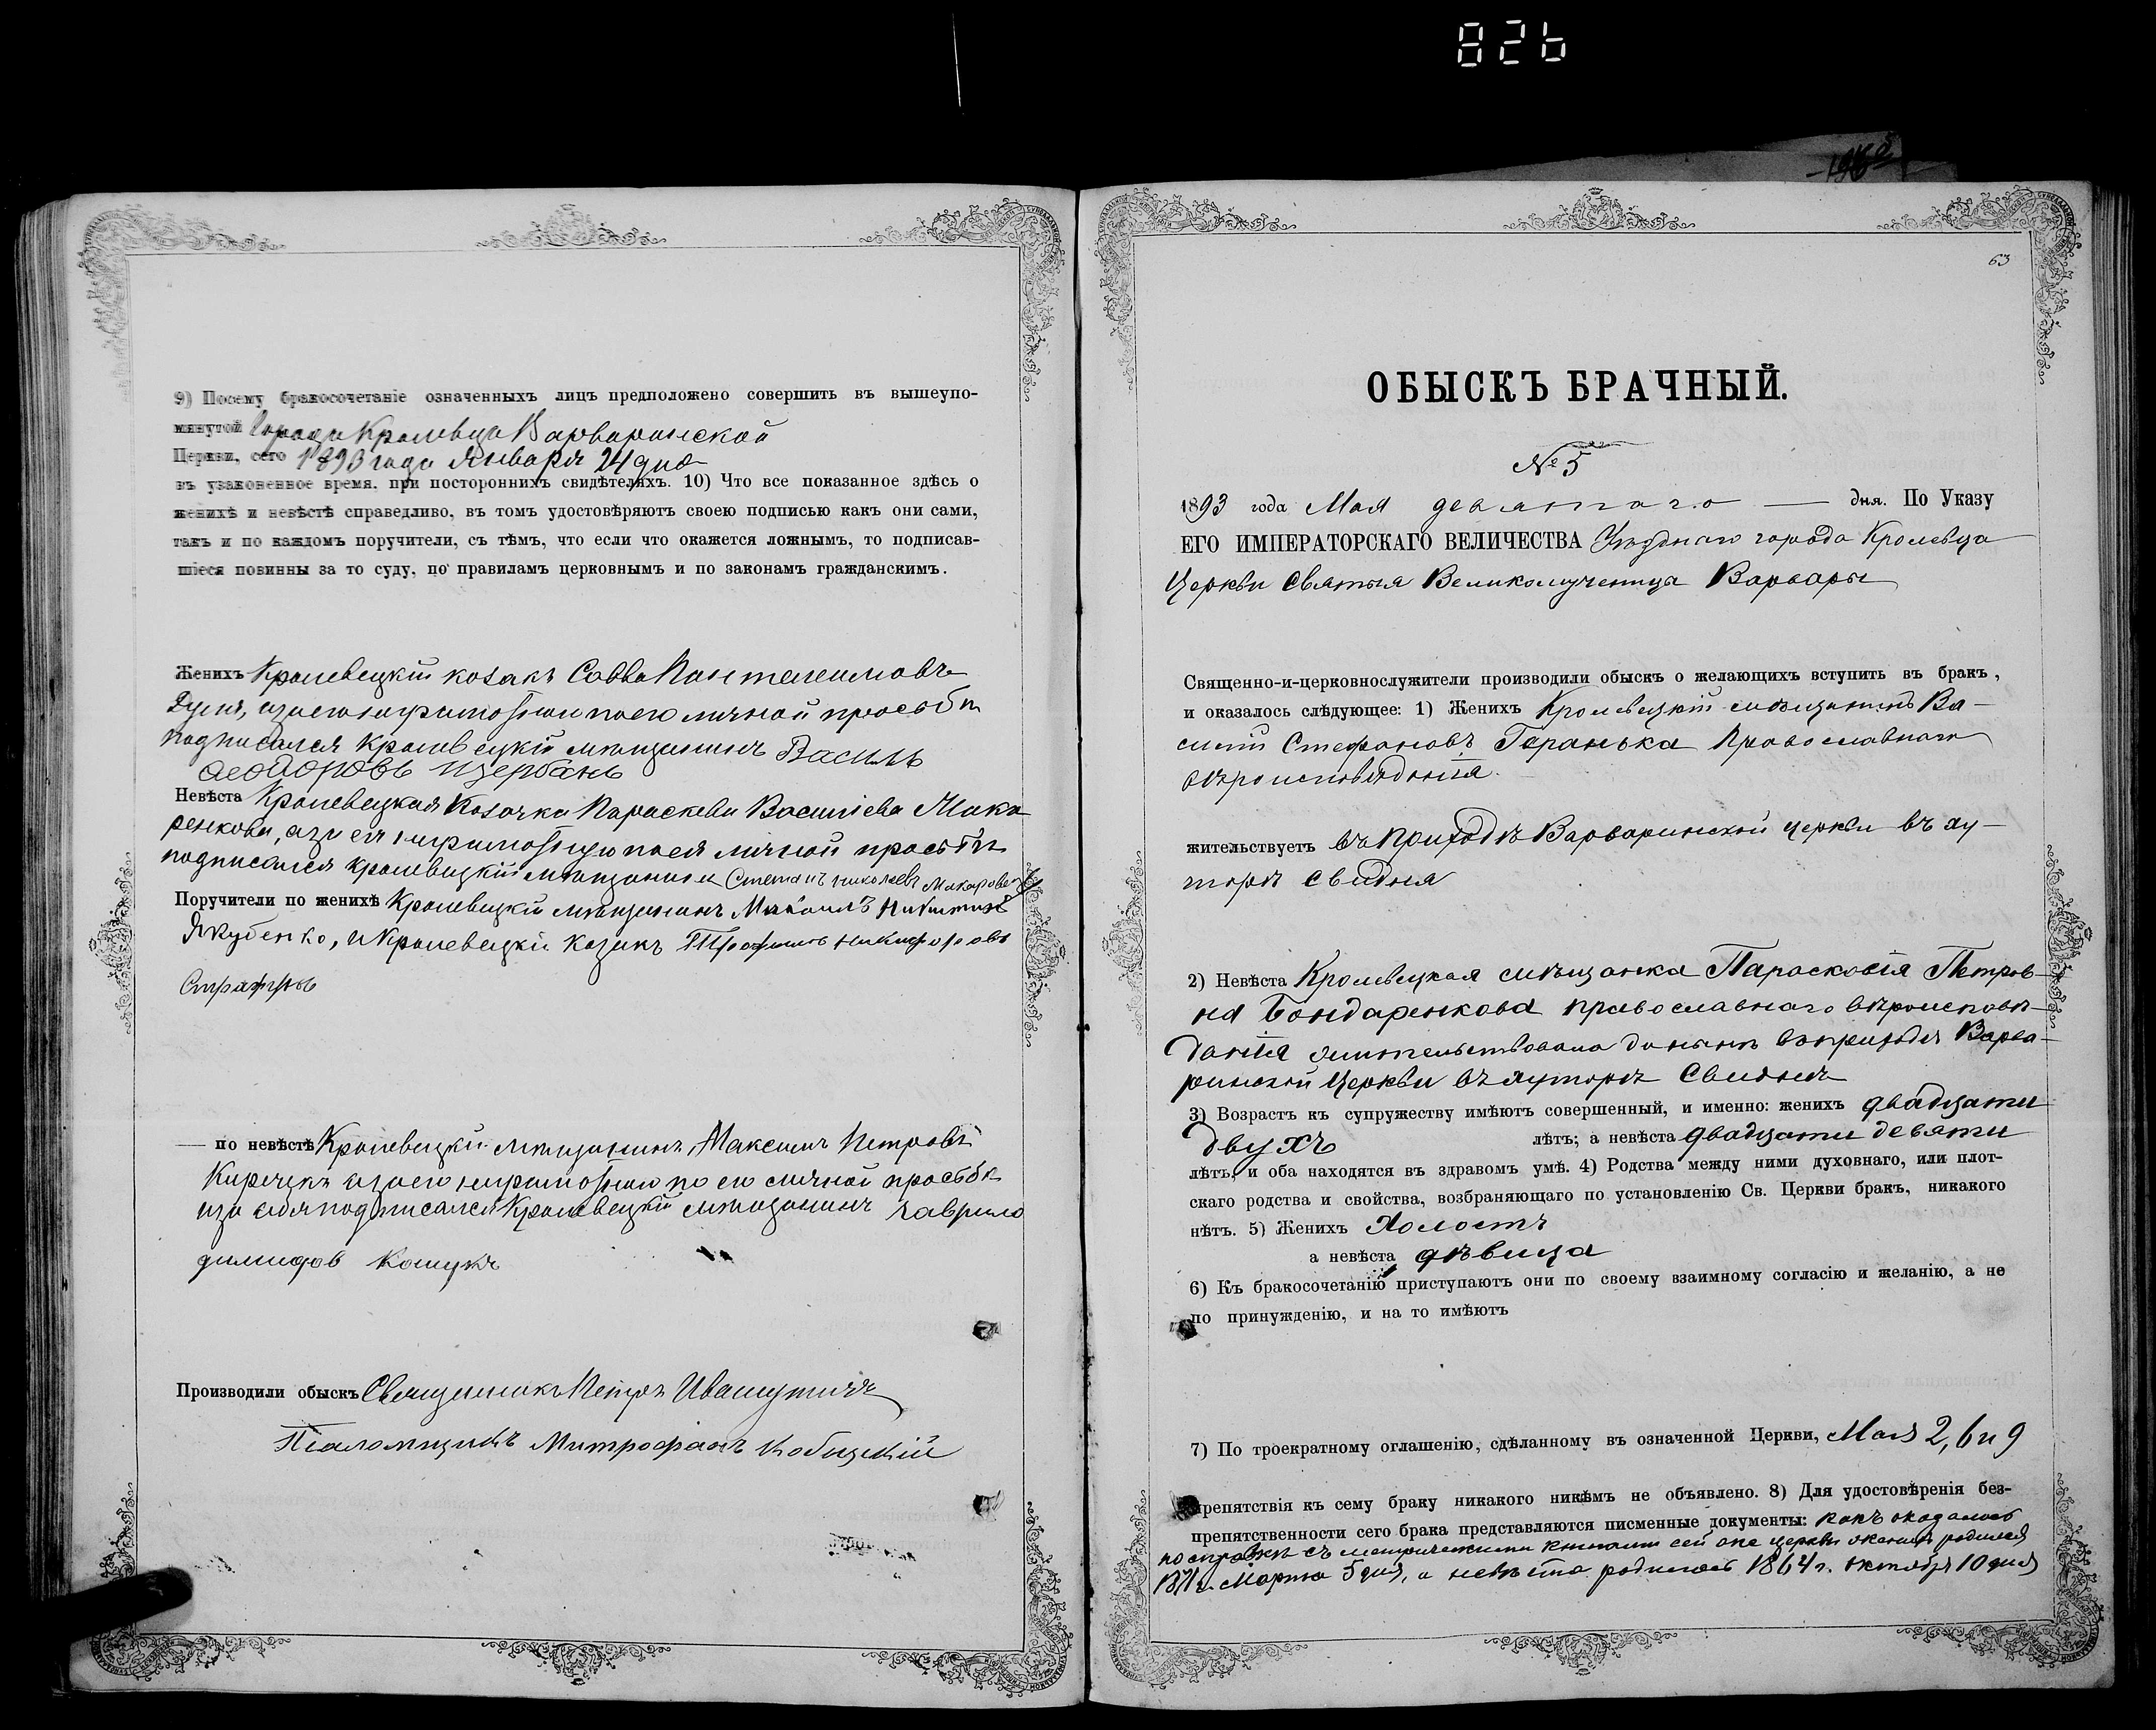 826
9) Посему бракосочетаніе означенныхъ лицъ предположено совершить въ вышеупо-
мянутой Города Кролевца Варваринской
Церкви, сего 1893 года Января 24 дня
въ узаконенное время, при постороннихъ свидѣтеляхъ. 10) Что все показанное здѣсь о
женихѣ и невѣстѣ справедливо, въ томъ удостовѣряютъ своею подписью какъ они сами,
такъ и по каждомъ поручители, съ тѣмъ, что если что окажется ложнымъ, то подписав-
шіеся повинны за то суду, по правиламъ церковнымъ и по законамъ гражданскимъ.
Женихъ Кролевецкій козакъ Савва Пантелеимовъ
а за его неграмотностію по его личной просьбѣ
подписался Кролевецкій мѣщанинъ Василь
Феодоровъ Щербань
Невѣста Кролевецкая Козачка Параскева Василіева Мака
ренкова, а за ея неграмотную по ея личной просьбѣ
подписался кролевецкій мѣщанинъ Степанъ Николаевъ
Поручители по женихѣ Кролевецкій мѣщанинъ
Якубенко, и Кролевецкій Козакъ Трофимъ Никифоровъ
— по невѣстѣ Кролевецкій мѣщанинъ Максимъ Петровъ
а за его неграмотностію по его личной просьбѣ
и за себя подписался Кролевецкій мѣщанинъ Гаврило
Производили обыскъ Священникъ Петръ Ивашутичъ
Псаломщикъ Митрофанъ Кобыцкій
63
ОБЫСКЪ БРАЧНЫЙ.
№ 5
1893 года Мая девятаго — дня. По Указу
ЕГО ИМПЕРАТОРСКАГО ВЕЛИЧЕСТВА Уѣзднаго города Кролевца
Церкви Святыя Великомученица Варвары
Священно-и-церковнослужители производили обыскъ о желающихъ вступить въ бракъ,
и оказалось слѣдующее: 1) Женихъ Кролевецкій мѣщанинъ Ва-
силій Стефановъ Таранька Православнаго
вѣроисповѣданія.
жительствуетъ въ приходѣ Варваринской церкви въ ху-
торѣ Свидня
2) Невѣста Кролевецкая мѣщанка Парасковія Петров-
на Бондаренкова православнаго вѣроисповѣ-
данія жительствовала донынѣ въ приходѣ Варва-
ринской Церкви въ хуторѣ Свиднѣ
3) Возрастъ къ супружеству имѣютъ совершенный, и именно: женихъ двадцати
двухъ лѣтъ; а невѣста двадцати девяти
лѣтъ, и оба находятся въ здравомъ умѣ. 4) Родства между ними духовнаго, или плот-
скаго родства и свойства, возбраняющаго по установленію Св. Церкви бракъ, никакого
нѣтъ. 5) Женихъ Холостъ
а невѣста дѣвица
6) Къ бракосочетанію приступаютъ они по своему взаимному согласію и желанію, а не
по принужденію, и на то имѣютъ
7) По троекратному оглашенію, сдѣланному въ означенной Церкви, Мая 2, 6 и 9
препятствія къ сему браку никакого никѣмъ не объявлено. 8) Для удостовѣренія без-
препятственности сего брака представляются писменные документы: какъ оказалось
по справкѣ съ метрическими книгами сей же церкви женихъ родился
1871 г. Марта 5 дня, а невѣста родилась 1864 г. Октября 10 дня